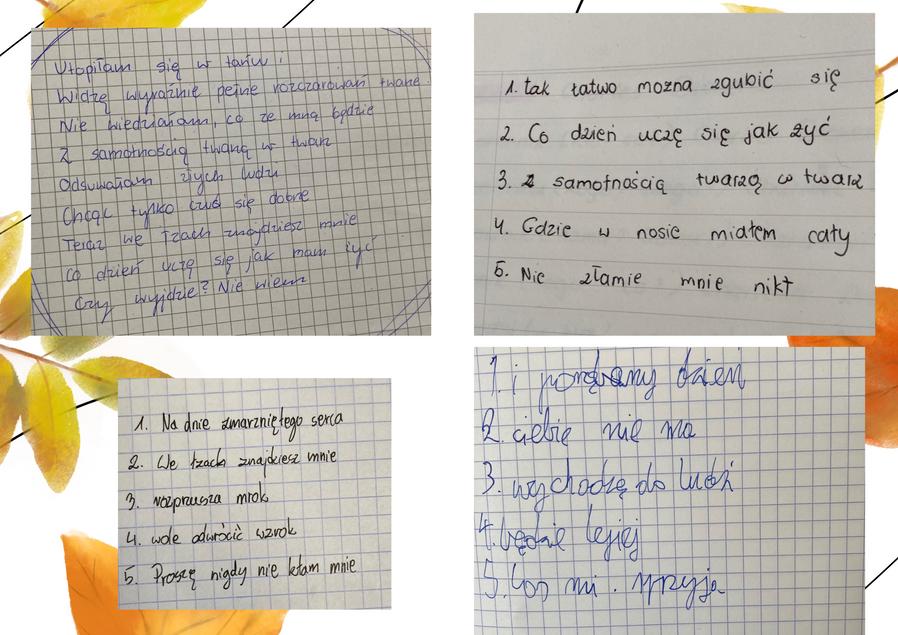 Utopiłam się w tańcu i
Widzę wyraźnie pełne rozczarowań twarze
Nie wiedziałam, co ze mną będzie
Z samotnością twarzą w twarz
Odsuwałam złych ludzi
Chcąc tylko czuć się dobrze
Teraz we łzach znajdziesz mnie
Co dzień uczę się jak mam żyć
Czy wyjdzie? Nie wiem
1. tak łatwo można zgubić się
2. Co dzień uczę się jak żyć
3. z samotnością twarzą w twarz
4. Gdzie w nosie miałem cały
5. Nie złamie mnie nikt
1. Na dnie zmarzniętego serca
2. We łzach znajdziesz mnie
3. rozprusza mrok
4. wole odwrócić wzrok
5. Proszę nigdy nie kłam mnie
1. i porąbany dzień
2. ciebie nie ma
3. wychodzę do ludzi
4. będzie lepiej
5. Los mi . sprzyja